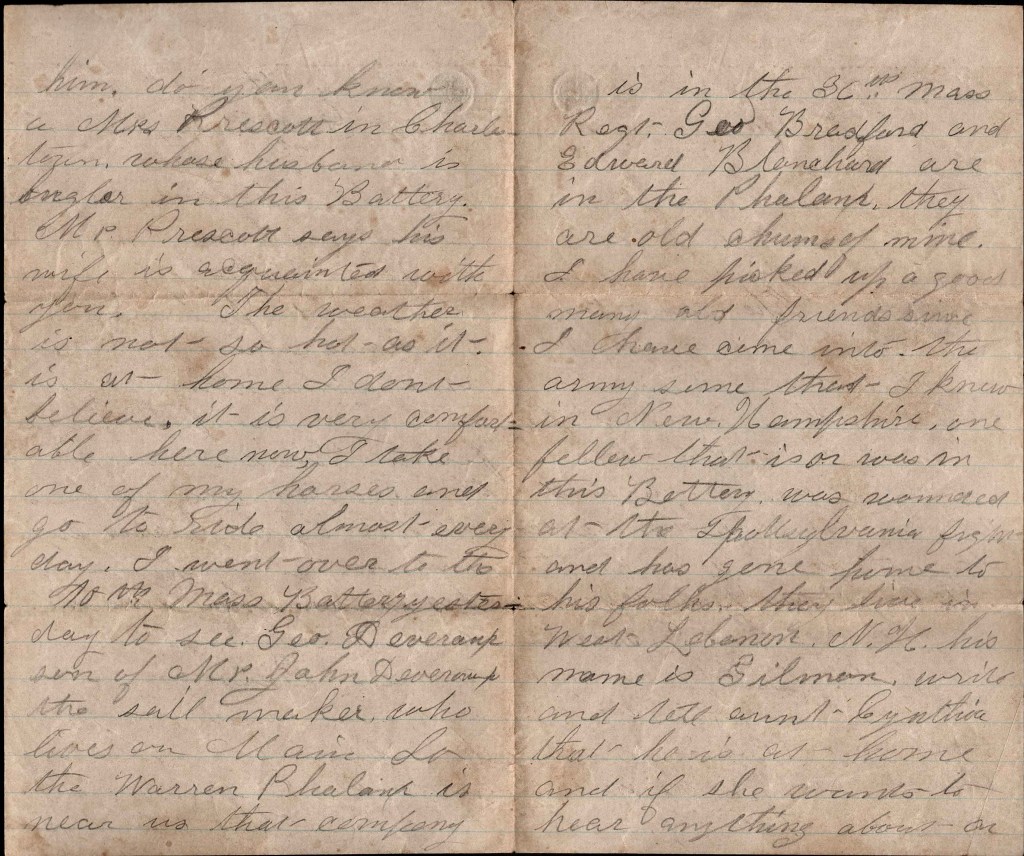 him. do you know
a Mrs Prescott in Charles-
town. whose husband is
bugler in this Battery.
Mr. Prescott says his
wife is acquainted with
you. The weather
is not so hot as it
is at home I dont
believe, it is very comfort=
able here now, I take
one of my horses and
go to ride almost every
day. I went over to the
10th Mass Battery yester=
day to see Geo.
son of Mr. John
the sail maker. who
lives on Main So
the Warren Phalanx is
near us that company
is in the 36th Mass
Regt. Geo Bradford and
Edward Blanchard are
in the Phalanx. they
are old chums of mine.
I have picked up a good
many old friends since
I have come into the
army some that I knew
in New. Hampshire. one
fellow that is or was in
this Battery. was wounded
at the Spottsylvania fight
and has gone home to
his folks. they live in
West Lebanon. N. H. his
name is Gilman. write
and tell aunt Cynthia
that he is at home
and if she wants to
hear anything about on